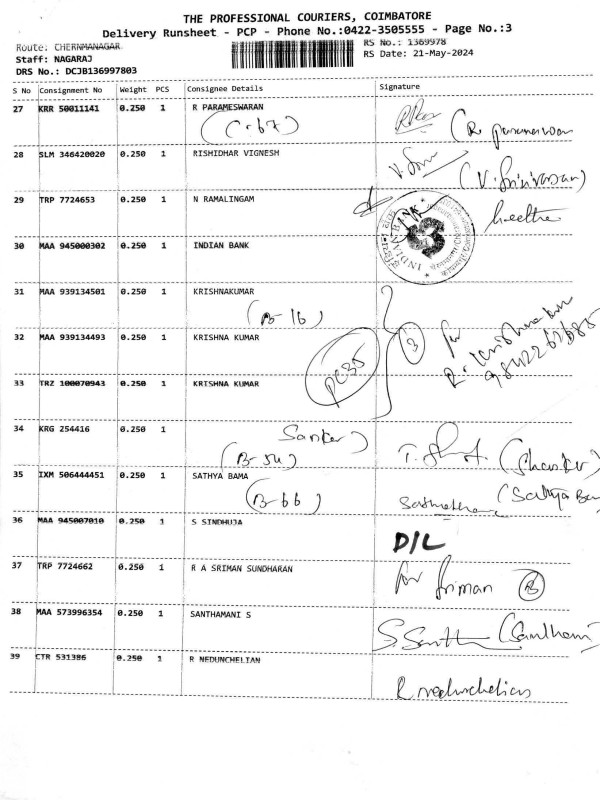 THE PROFESSIONAL COURIERS, COIMBATORE
Delivery Runsheet - PCP - Phone No.:0422-3505555 - Page No.:3
Route: CHERNMANAGAR
RS No.: 1369978
Staff: NAGARAJ
RS Date: 21-May-2024
DRS No.: DCJB136997803
S No Consignment No Weight PCS Consignee Details Signature
27 KRR 50011141 0.250 1 R PARAMESWARAN
(C-67)
28 SLM 346420020 0.250 1 RISHIDHAR VIGNESH
V. (V. Srinivasan)
29 TRP 7724653 0.250 1 N RAMALINGAM
INDIAN BANK
30 MAA 945000302 0.250 1 INDIAN BANK
31 MAA 939134501 0.250 1 KRISHNAKUMAR
(B-16)
32 MAA 939134493 0.250 1 KRISHNA KUMAR
PC35 3 for
33 TRZ 100070943 0.250 1 KRISHNA KUMAR
34 KRG 254416 0.250 1
Sanker)
(B-54)
35 IXM 506444451 0.250 1 SATHYA BAMA
(B-66)
36 MAA 945007010 0.250 1 S SINDHUJA
D/L
37 TRP 7724662 0.250 1 R A SRIMAN SUNDHARAN
for Sriman
38 MAA 573996354 0.250 1 SANTHAMANI S
39 CTR 531386 0.250 1 R NEDUNCHELIAN
R nedunchelian